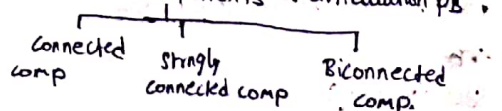 PB.
Connected
comp
Stringly
connected comp
Biconnected
comp.